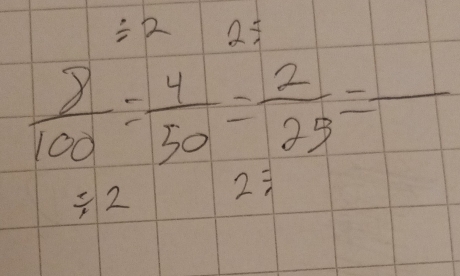 ÷2 2÷
8/100 = 4/50 = 2/25 =
÷2 2÷